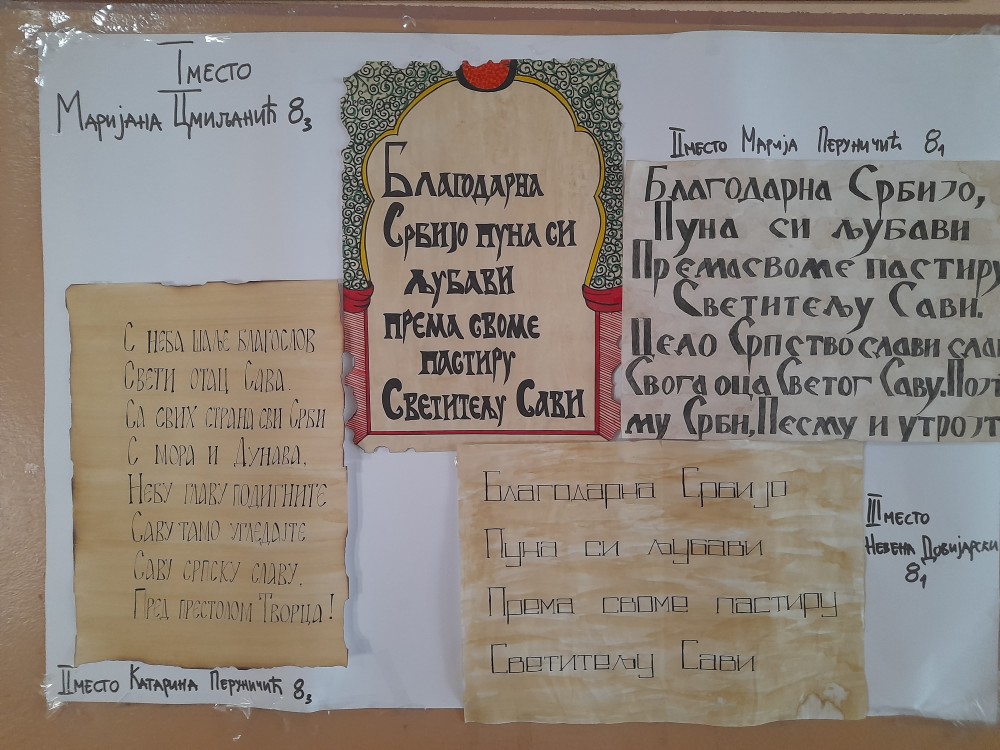 I место
Маријана Цмиљанић 8₃
Благодарна
Србијо пуна си
љубави
према своме
пастиру
Светитељу Сави
II место Марија Перуничић 8₁
Благодарна Србијо,
Пуна си љубави
Према своме пастиру
Светитељу Сави.
Цело Српство слави
Свога оца Светог Саву.
му Срби, Песму и
С неба шаље благослов
Свети отац Сава.
Са свих страна сви Срби
С мора и Дунава.
Небу главу подигните
Саву тамо угледајте
Саву српску славу,
Пред престолом Творца!
II место Катарина Перуничић 8₃
Благодарна Србијо
Пуна си љубави
Према своме пастиру
Светитељу Сави
III место
Невена Довијарски
8₁